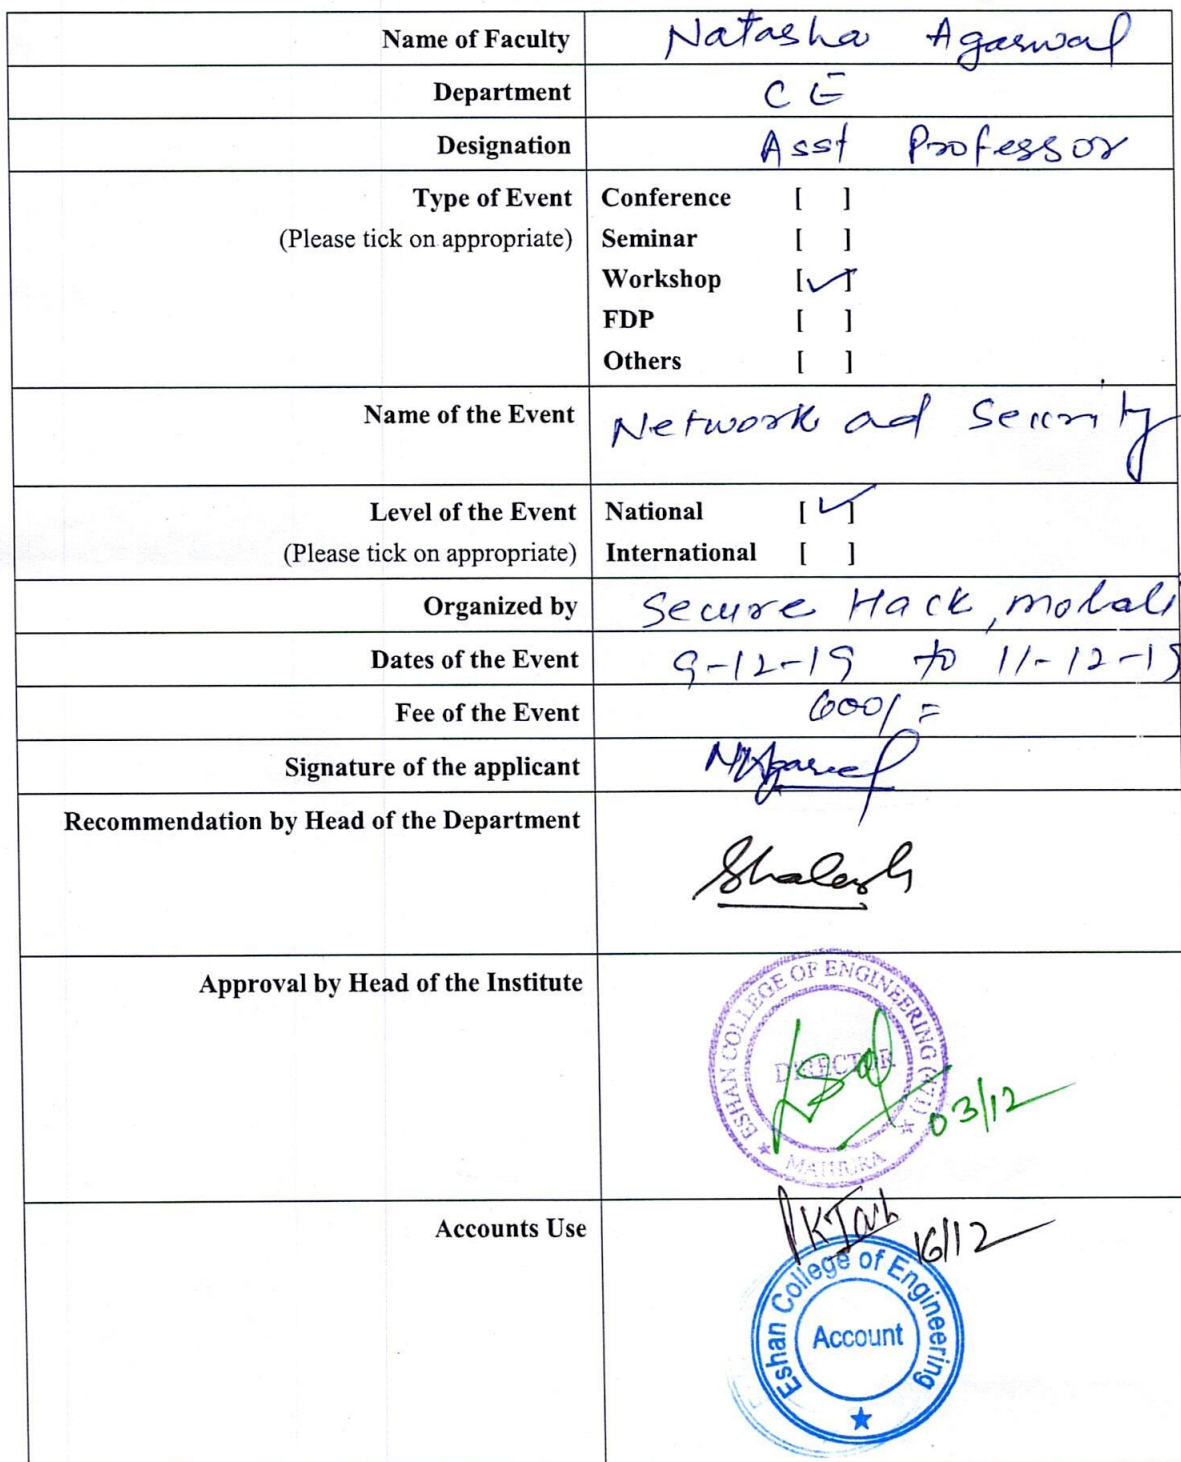 Name of Faculty Natasha Agarwal
Department CE
Designation Asst Professor
Type of Event Conference [ ]
(Please tick on appropriate) Seminar [ ]
Workshop [✓]
FDP [ ]
Others [ ]
Name of the Event Network ad Security
Level of the Event National [✓]
(Please tick on appropriate) International [ ]
Organized by Secure Hack, mohali
Dates of the Event 9-12-19 to 11-12-19
Fee of the Event 600/=
Signature of the applicant
Recommendation by Head of the Department
Approval by Head of the Institute
ESHAN COLLEGE OF ENGINEERING (471)
DIRECTOR
MATHURA
03/12
Accounts Use
16/12
Eshan College of Engineering
Account